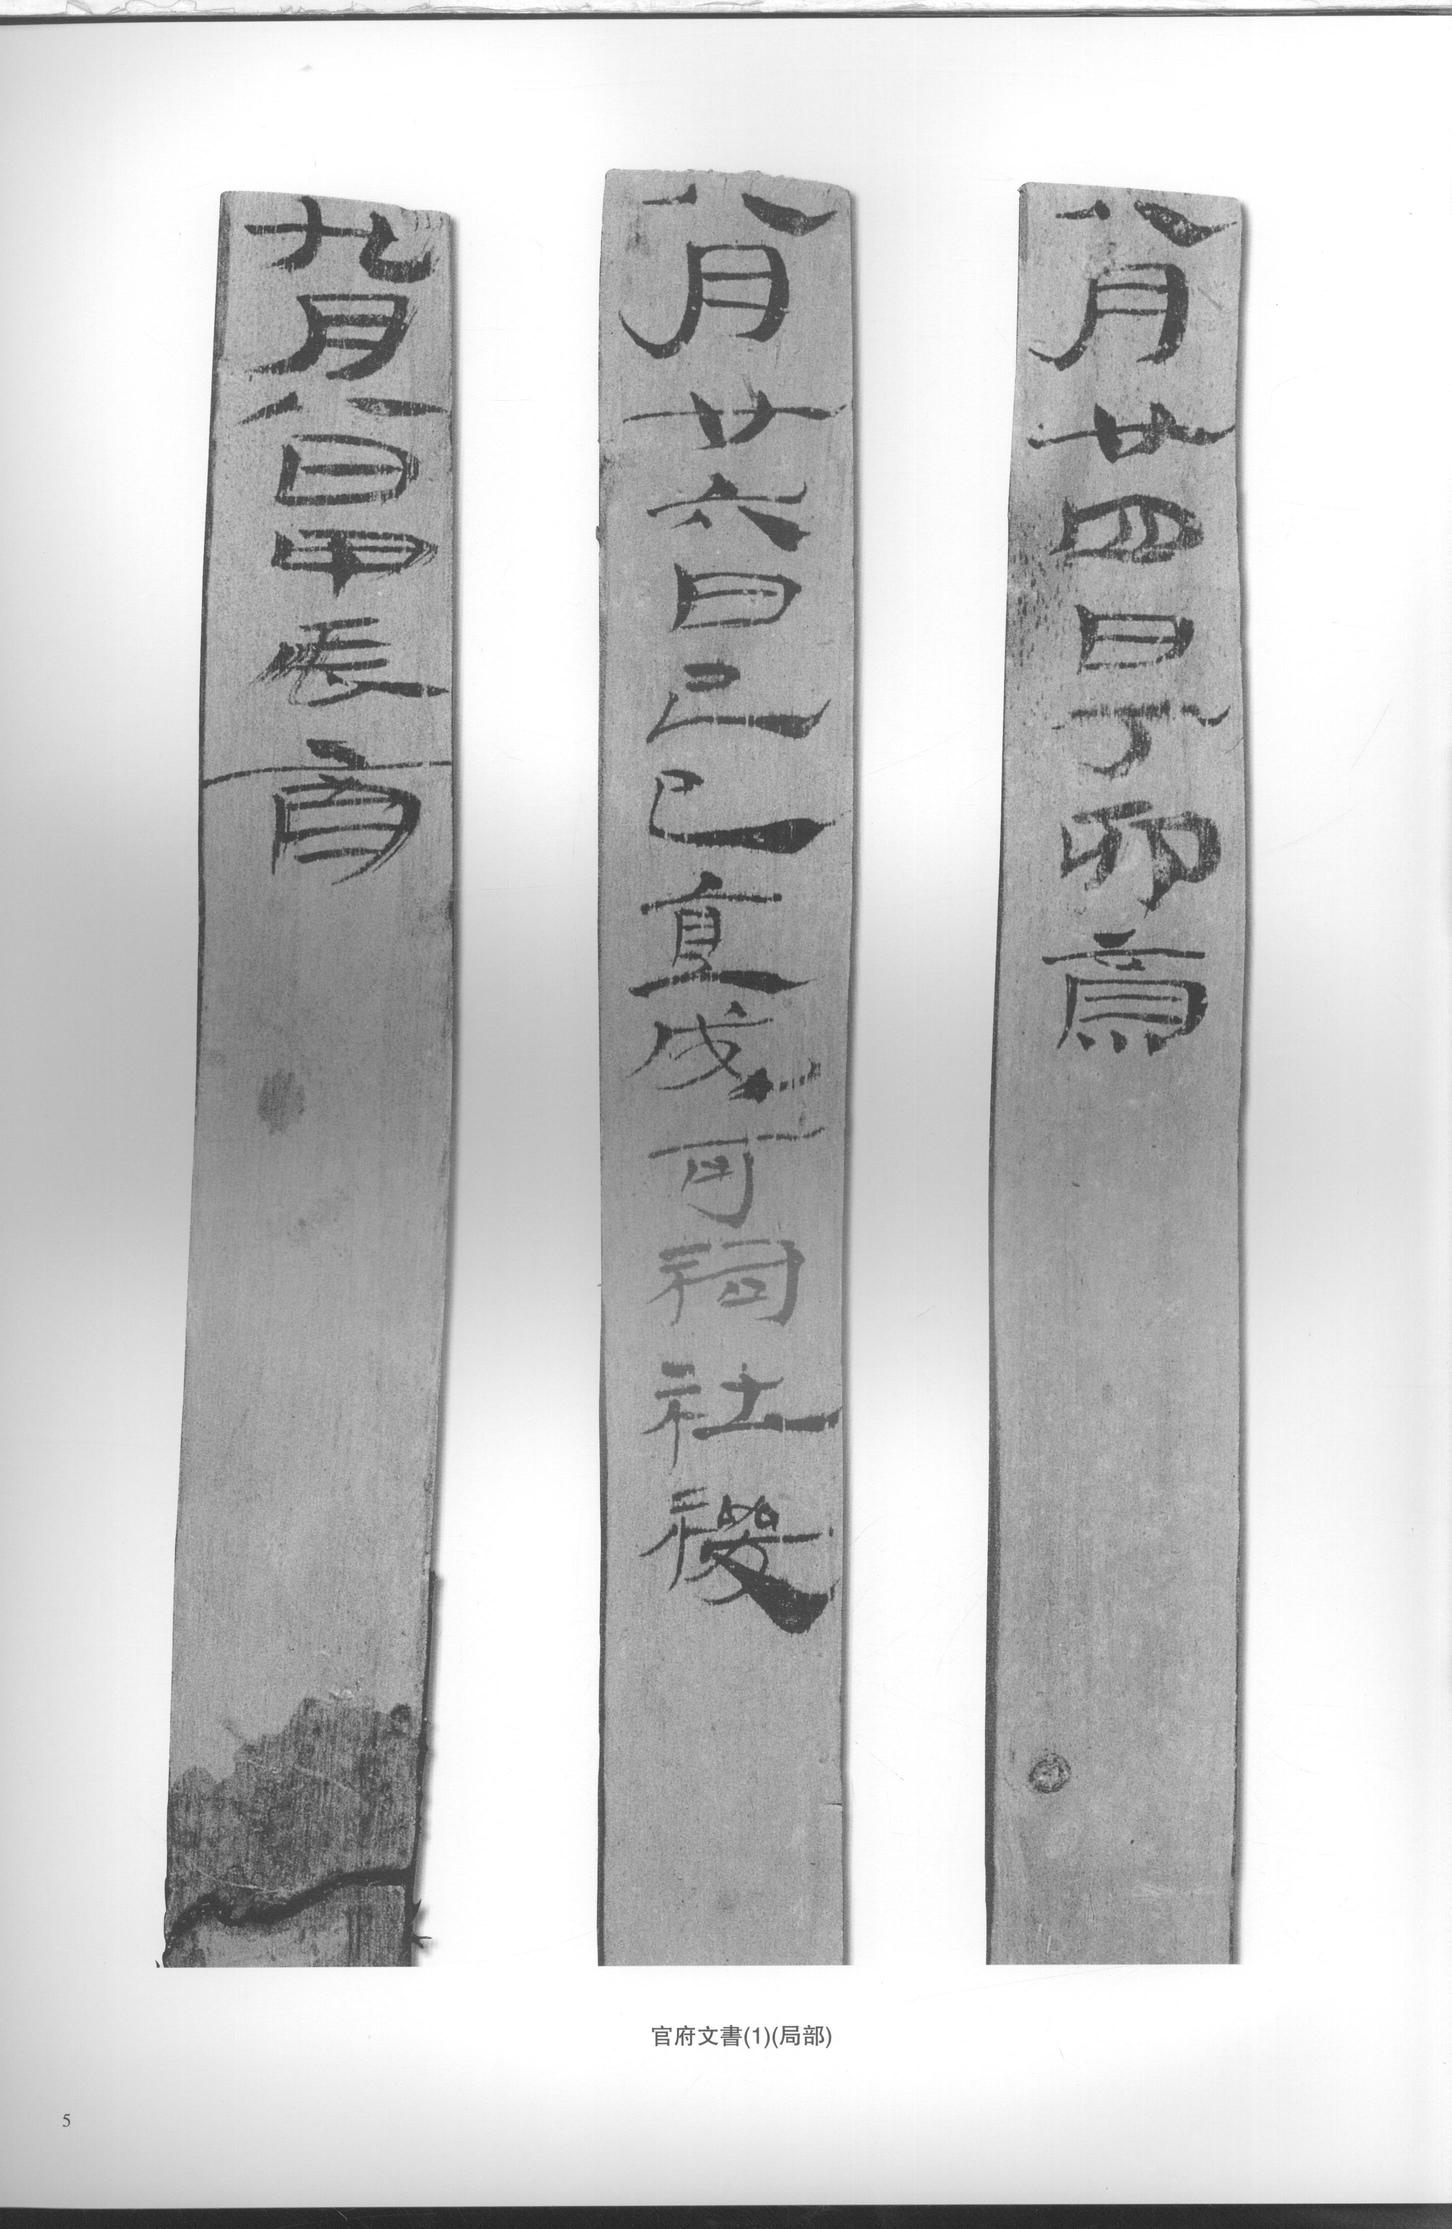 八月廿四日丁卯齋
八月廿六日己巳直成可祠社稷
九月八日甲辰齋
官府文書(1)(局部)
5